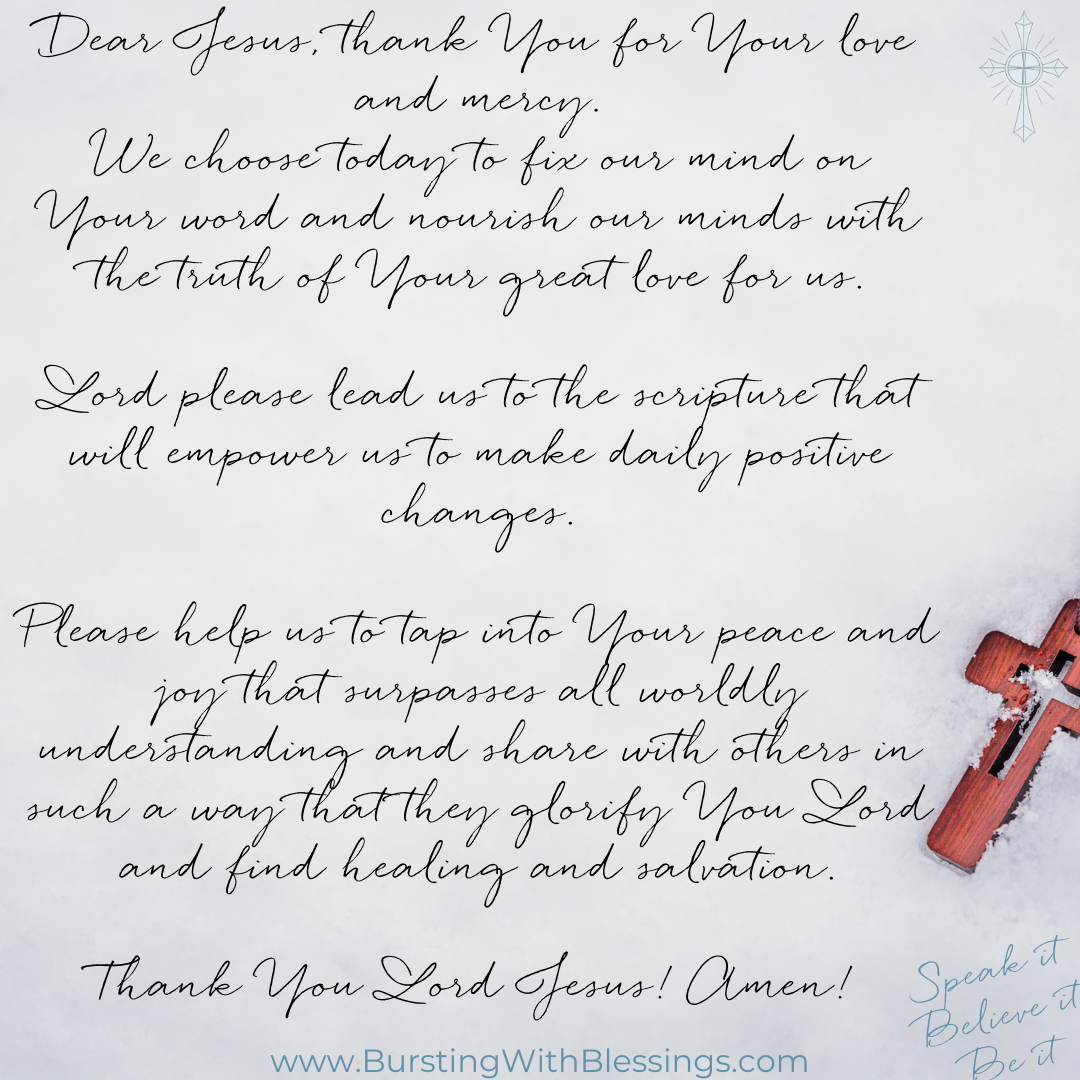 Dear Jesus, thank You for Your love
and mercy.
We choose today to fix our mind on
Your word and nourish our minds with
the truth of Your great love for us.
Lord please lead us to the scripture that
will empower us to make daily positive
changes.
Please help us to tap into Your peace and
joy that surpasses all worldly
understanding and share with others in
such a way that they glorify You Lord
and find healing and salvation.
Thank You Lord Jesus! Amen!
Speak it
Believe it
Be it
www.BurstingWithBlessings.com